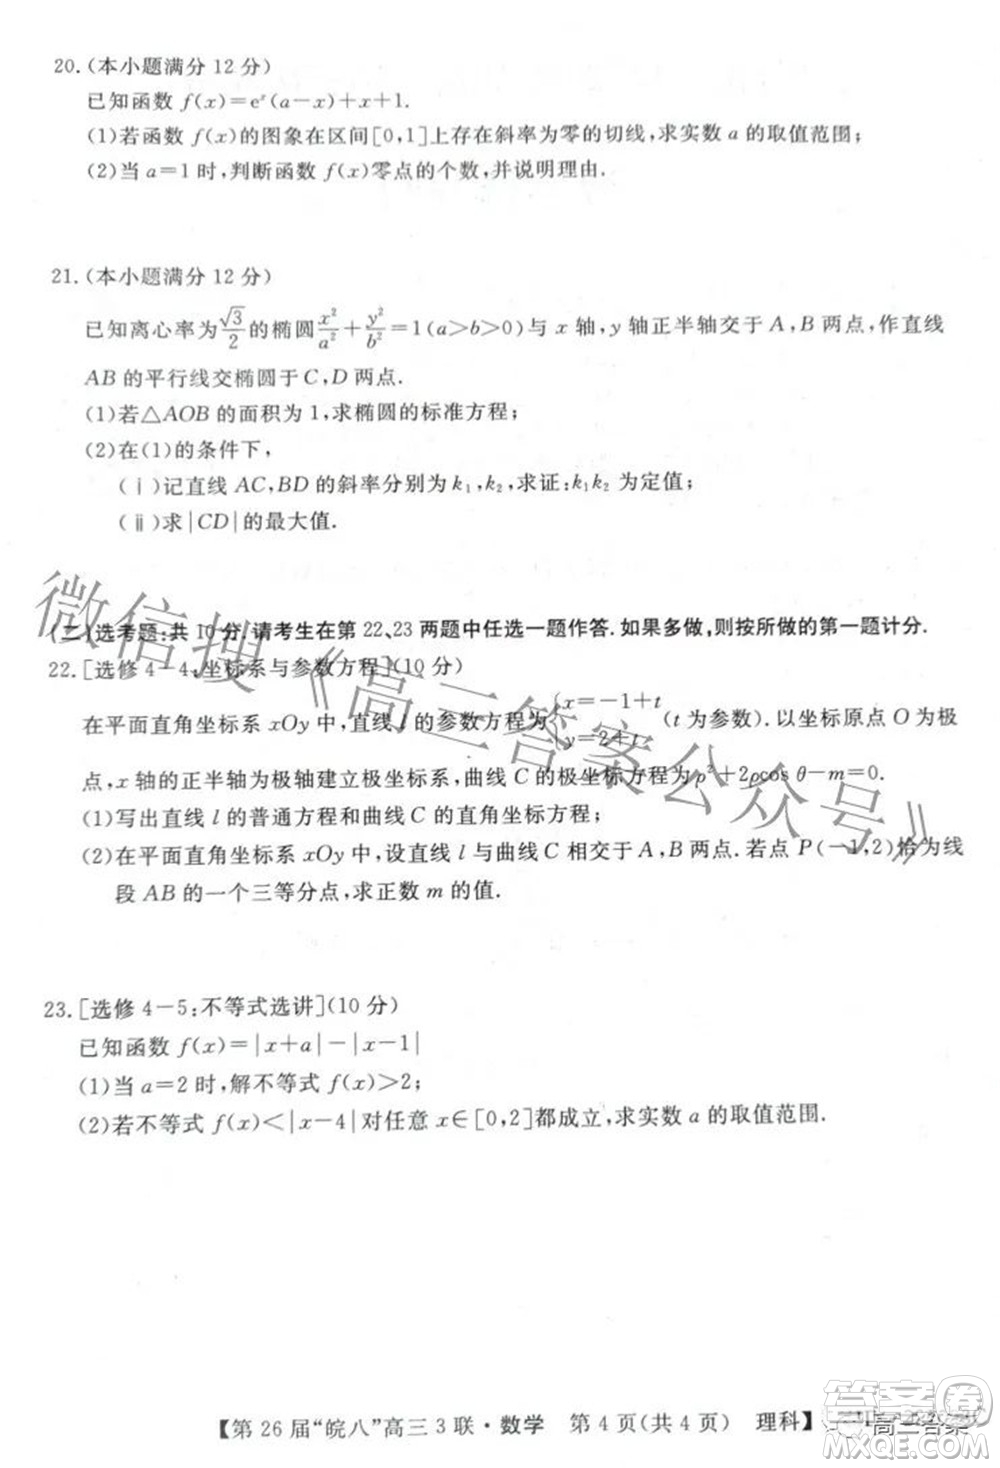 20.(本小题满分 12 分)
已知函数 f(x)=eˣ(a-x)+x+1.
(1)若函数 f(x)的图象在区间[0,1]上存在斜率为零的切线,求实数 a 的取值范围;
(2)当 a=1 时,判断函数 f(x)零点的个数,并说明理由.
21.(本小题满分 12 分)
已知离心率为√3/2的椭圆x²/a²+y²/b²=1(a>b>0)与 x 轴,y 轴正半轴交于 A,B 两点,作直线
AB 的平行线交椭圆于 C,D 两点.
(1)若△AOB 的面积为 1,求椭圆的标准方程;
(2)在(1)的条件下,
(ⅰ)记直线 AC,BD 的斜率分别为 k₁,k₂,求证:k₁k₂ 为定值;
(ⅱ)求|CD|的最大值.
(二)选考题:共 10 分.请考生在第 22、23 两题中任选一题作答.如果多做,则按所做的第一题计分.
22.[选修 4-4:坐标系与参数方程](10 分)
在平面直角坐标系 xOy 中,直线 l 的参数方程为{x=-1+t y=2+t (t 为参数).以坐标原点 O 为极
点,x 轴的正半轴为极轴建立极坐标系,曲线 C 的极坐标方程为 ρ²+2ρcos θ-m=0.
(1)写出直线 l 的普通方程和曲线 C 的直角坐标方程;
(2)在平面直角坐标系 xOy 中,设直线 l 与曲线 C 相交于 A,B 两点.若点 P(-1,2)恰为线
段 AB 的一个三等分点,求实数 m 的值.
23.[选修 4-5:不等式选讲](10 分)
已知函数 f(x)=|x+a|-|x-1|
(1)当 a=2 时,解不等式 f(x)>2;
(2)若不等式 f(x)<|x-4|对任意 x∈[0,2]都成立,求实数 a 的取值范围.
微信搜《高三答案公众号》
【第 26 届“皖八”高三 3 联·数学 第 4 页(共 4 页) 理科】
高三答案
答案圈